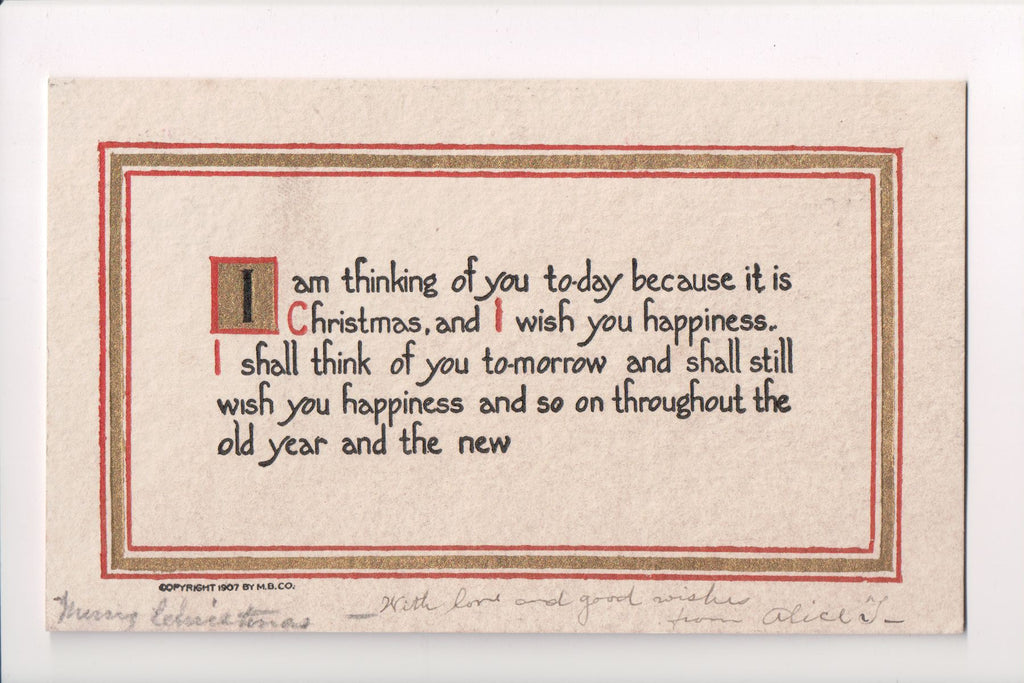 I am thinking of you to-day because it is
Christmas, and I wish you happiness.
I shall think of you to-morrow and shall still
wish you happiness and so on throughout the
old year and the new
COPYRIGHT 1907 BY M.B.CO.
Merry Christmas — With love and good wishes
from Alice